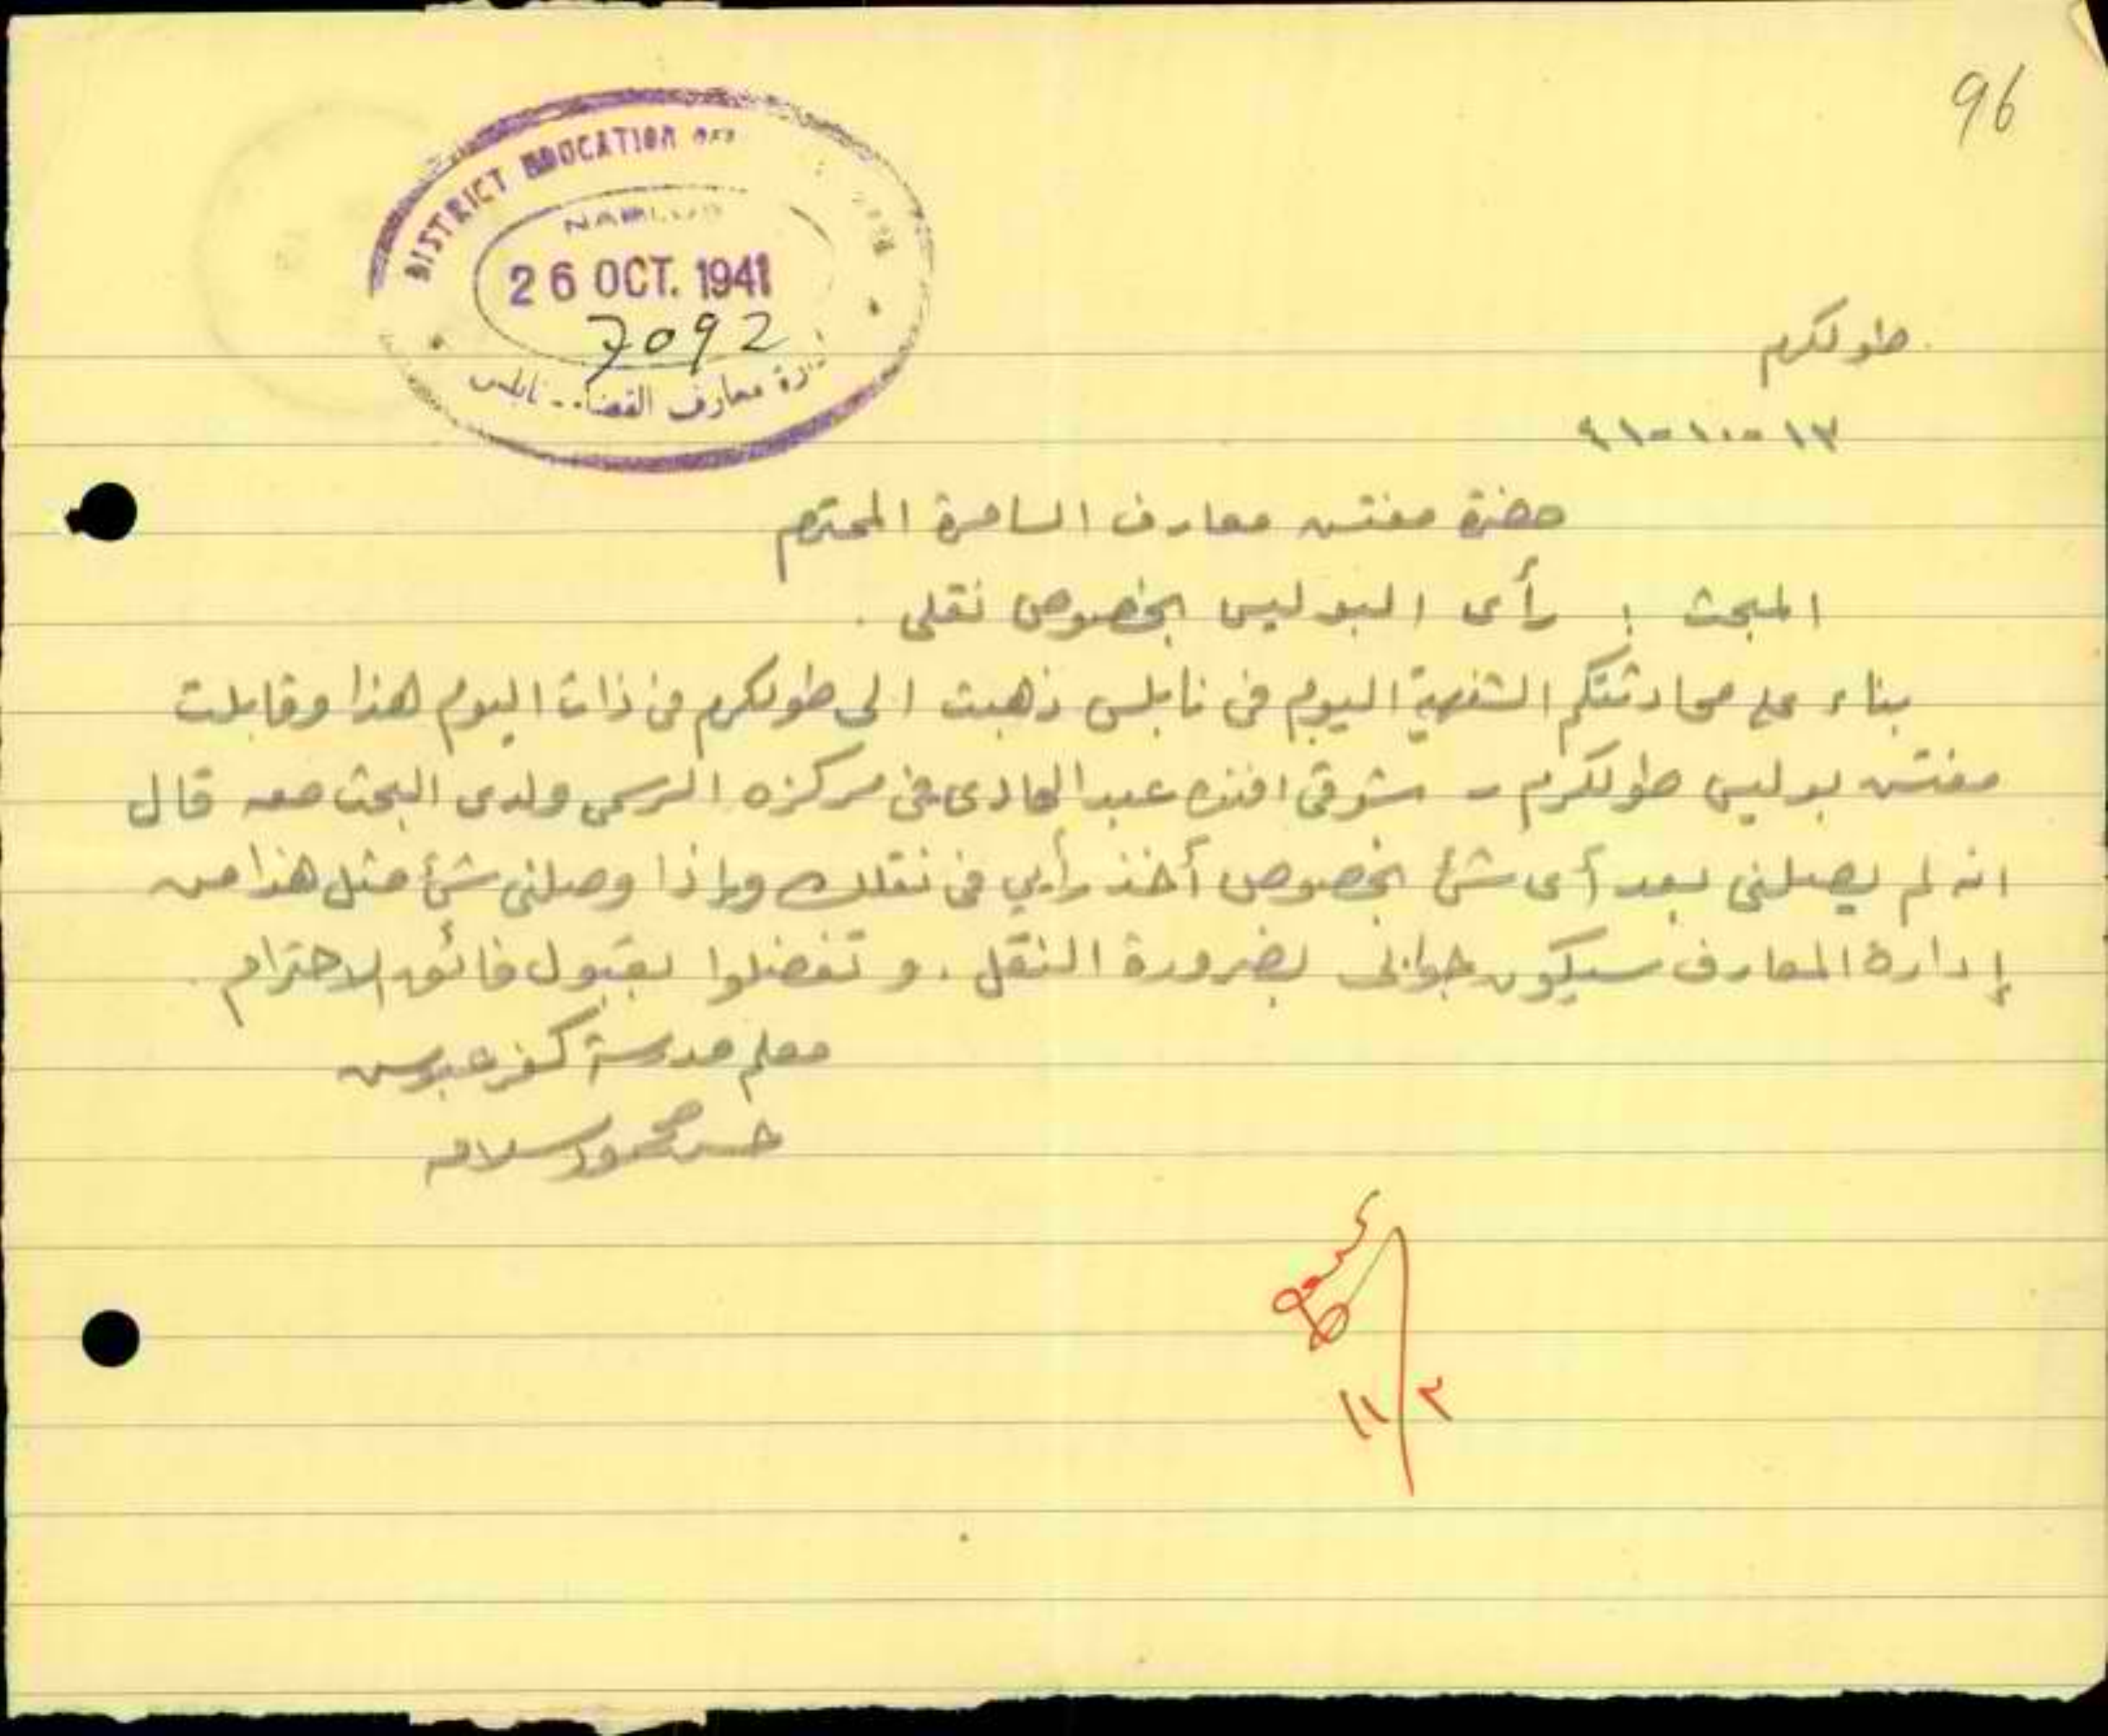 96
DISTRICT EDUCATION
NABLUS
26 OCT. 1941
7092
ادارة معارف القضاء - نابلس
طولكرم
١٣-١٠-٤١
حضرة مفتش معارف السامرة المحترم
المبحث : رأى البوليس بخصوص نقلى .
بناء على محادثتكم الشفهية اليوم في نابلس ذهبت الى طولكرم في ذات اليوم هذا وقابلت
مفتش بوليس طولكرم - شوقي افندي عبد الهادى في مركزه الرسمي ولدى البحث معه قال
انه لم يصلنى بعد أى شئ بخصوص أخذ رأيي في نقلك وإذا وصلنى شئ مثل هذا من
إدارة المعارف سيكون جوابى بضرورة النقل . و تفضلوا بقبول فائق الاحترام .
معلم مدرسة كفر عبوش
حسن محمود سلامه
١١/٢